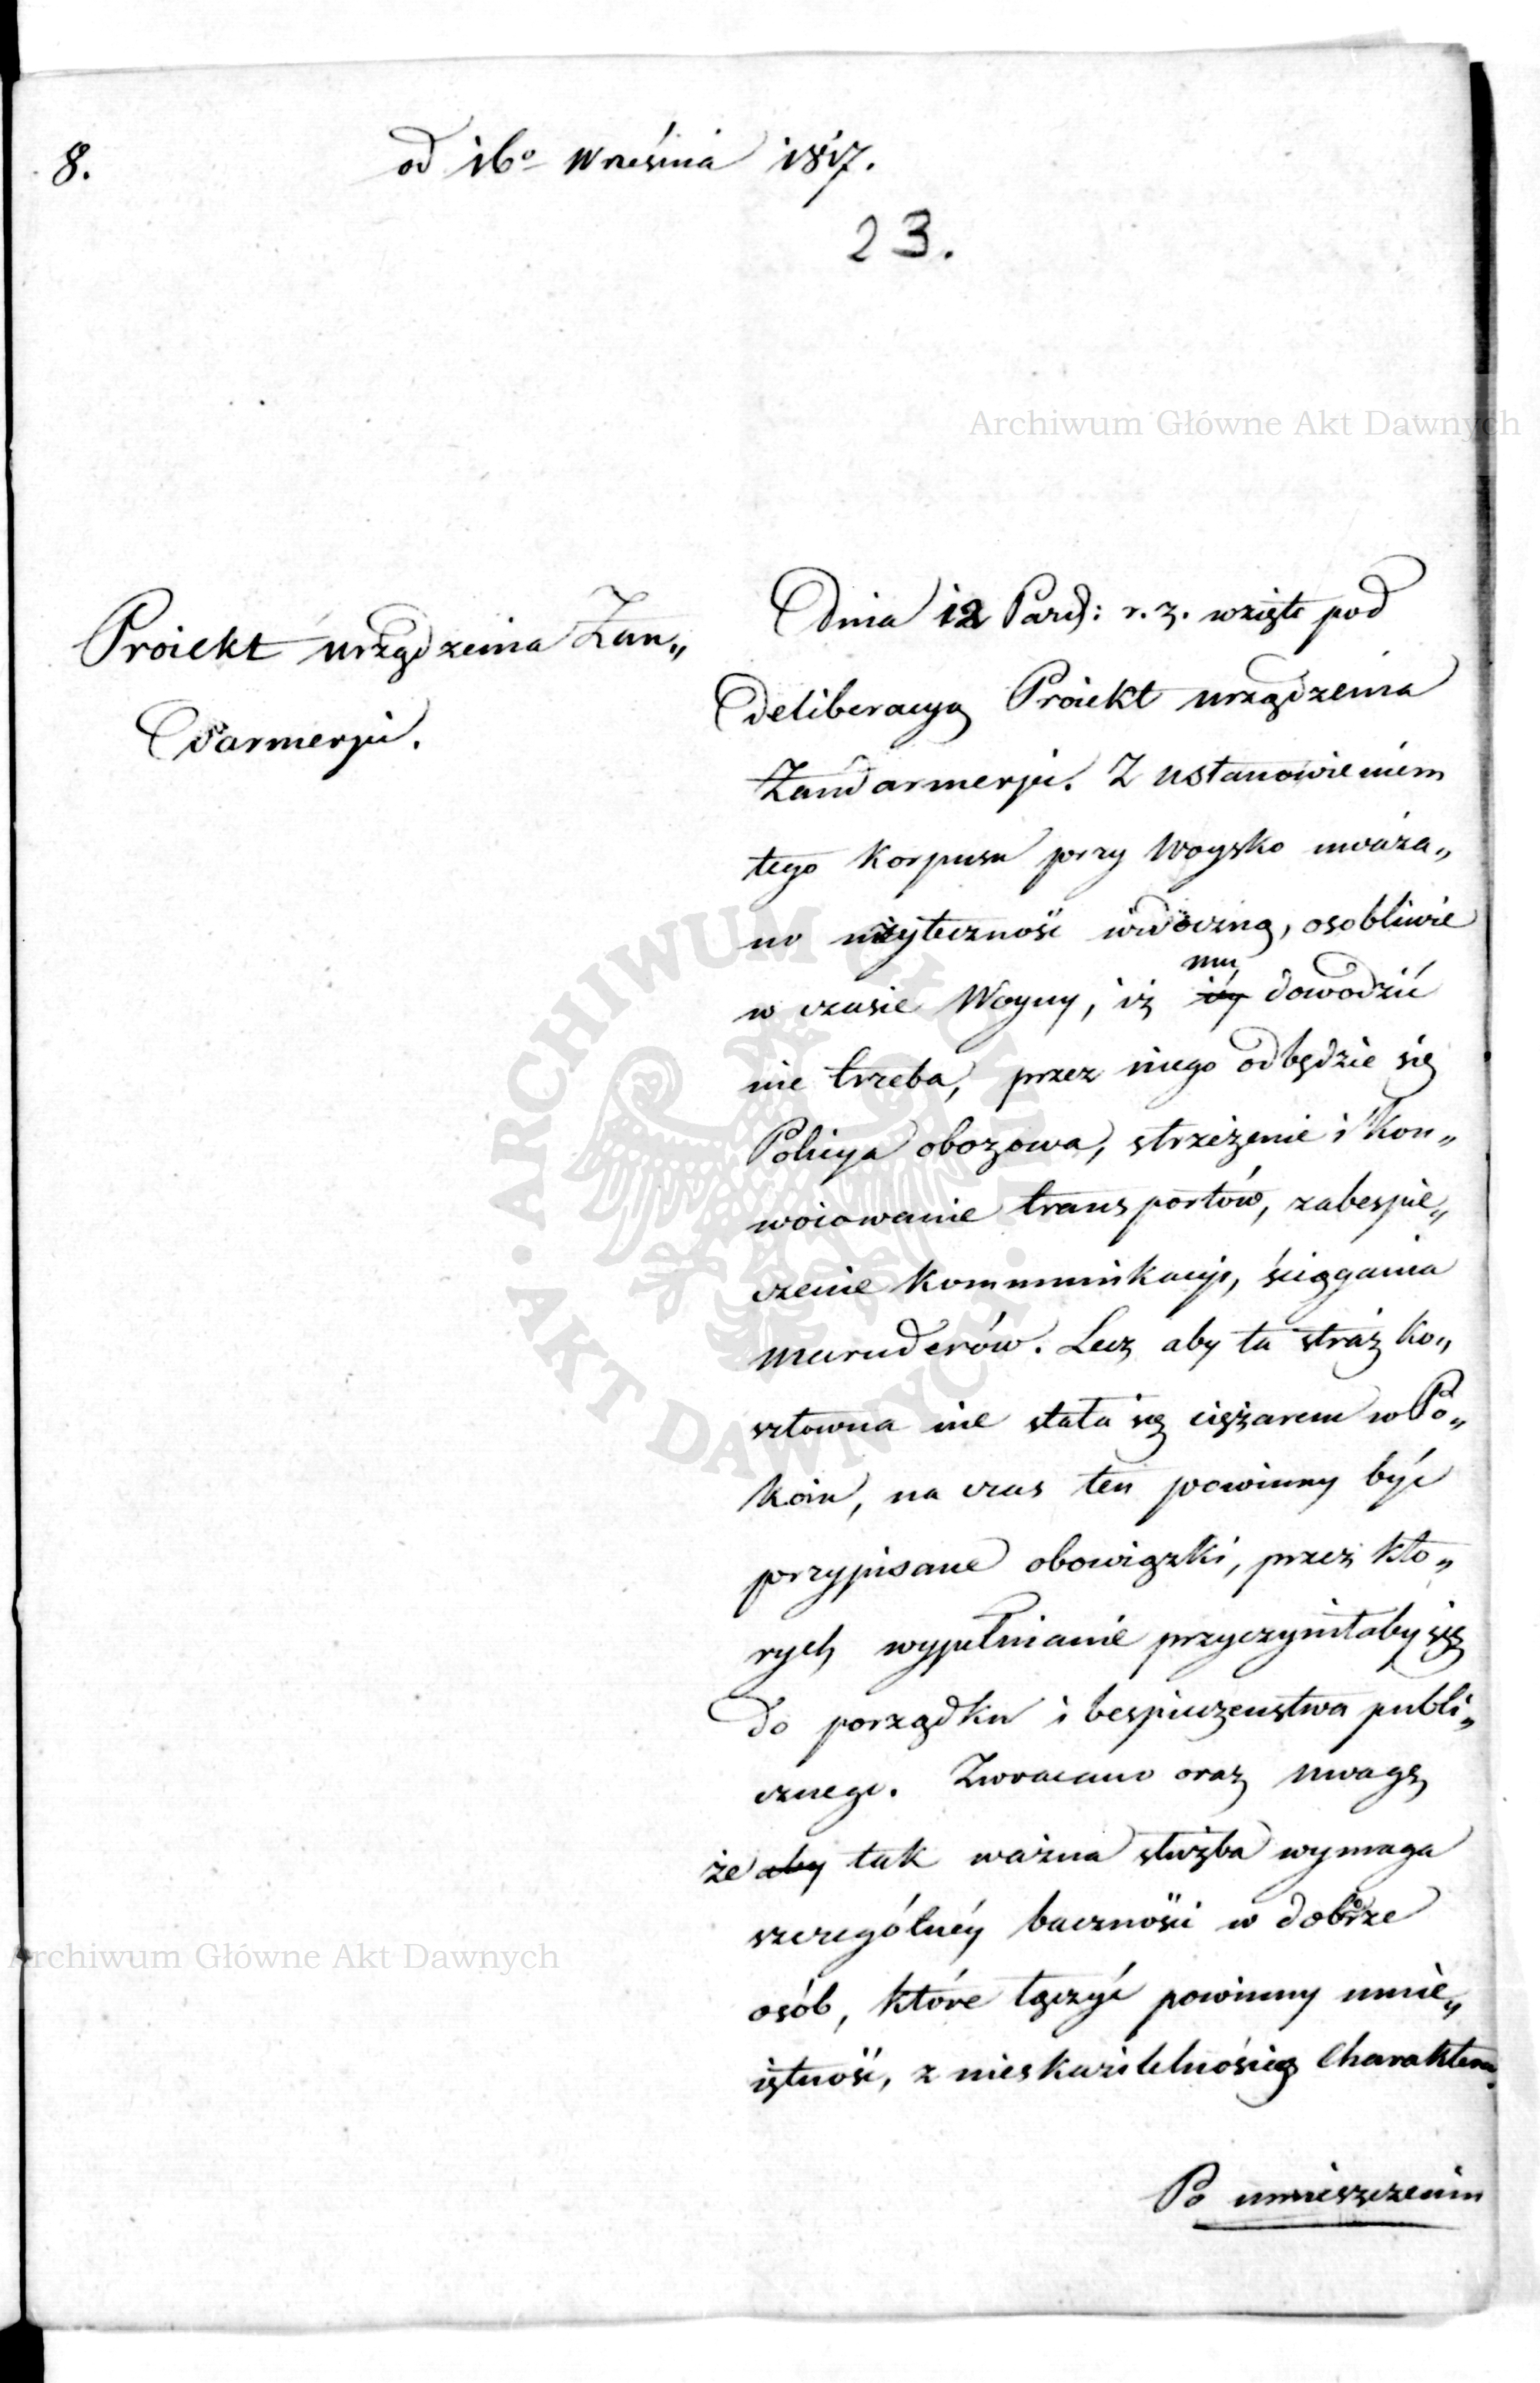 8.
od 16o Września 1817.
23.
Archiwum Główne Akt Dawnych
Proiekt urządzenia Żan„
darmerji.
Dnia 12 Paźd: r. z. wzięto pod
deliberacyą Proiekt urządzenia
Żandarmerji. Z ustanowieniem
tego Korpusu przy Woysko uważa„
no użyteczność widoczną, osobliwie
w czasie Woyny, iż mu dowodzić
nie trzeba, przez niego odbędzie się
Policya obozowa, strzeżenie i Kon„
woiowanie transportów, zabespie„
czenie Kommunikacji, ściągania
maruderów. Lecz aby ta straż ko„
sztowna nie stała się ciężarem w Po„
koiu, na czas ten powinny być
przypisane obowiązki, przez któ„
rych wypełnianie przyczyniłaby się
do porządku i bespieczeństwa publi„
cznego. Zwracano oraz uwagę
że aby tak ważna służba wymaga
szczególnéy baczności w doborze
osób, które łączyć powinny umie„
iętność, z nieskazitelnością Charakteru.
Po umieszczeniu
Archiwum Główne Akt Dawnych
ARCHIWUM GŁÓWNE · AKT DAWNYCH ·